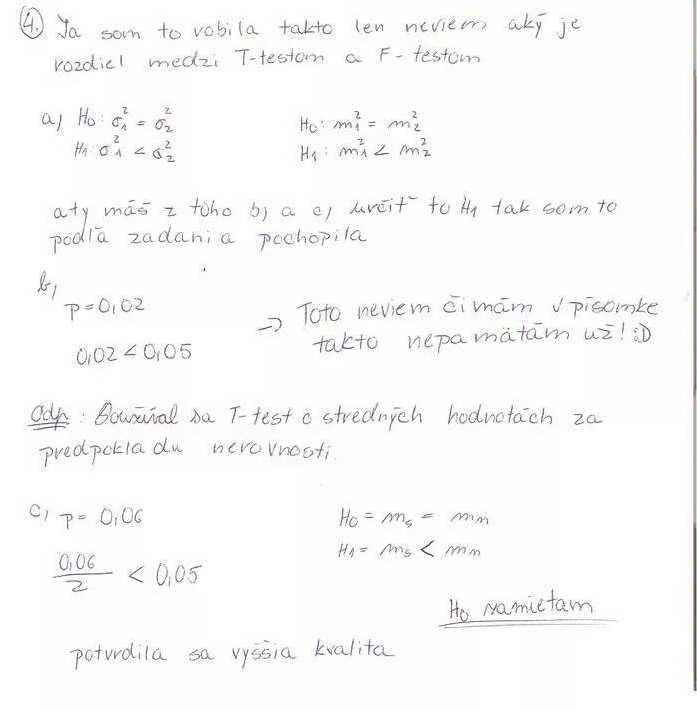 4. Ja som to robila takto len neviem aký je
rozdiel medzi T-testom a F-testom
a) H0: σ1² = σ2²
H1: σ1² < σ2²
H0: m1² = m2²
H1: m1² < m2²
aty máš z toho b) a c) určiť to H1 tak som to
podľa zadania pochopila
b)
p=0,02
0,02 < 0,05
→ Toto neviem či mám v písomke
takto nepamätám už! :D
Odp: Používal sa T-test o stredných hodnotách za
predpokladu nerovnosti.
c) p= 0,06
0,06/2 < 0,05
H0 = ms = mn
H1 = ms < mn
H0 zamietam
potvrdila sa vyššia kvalita